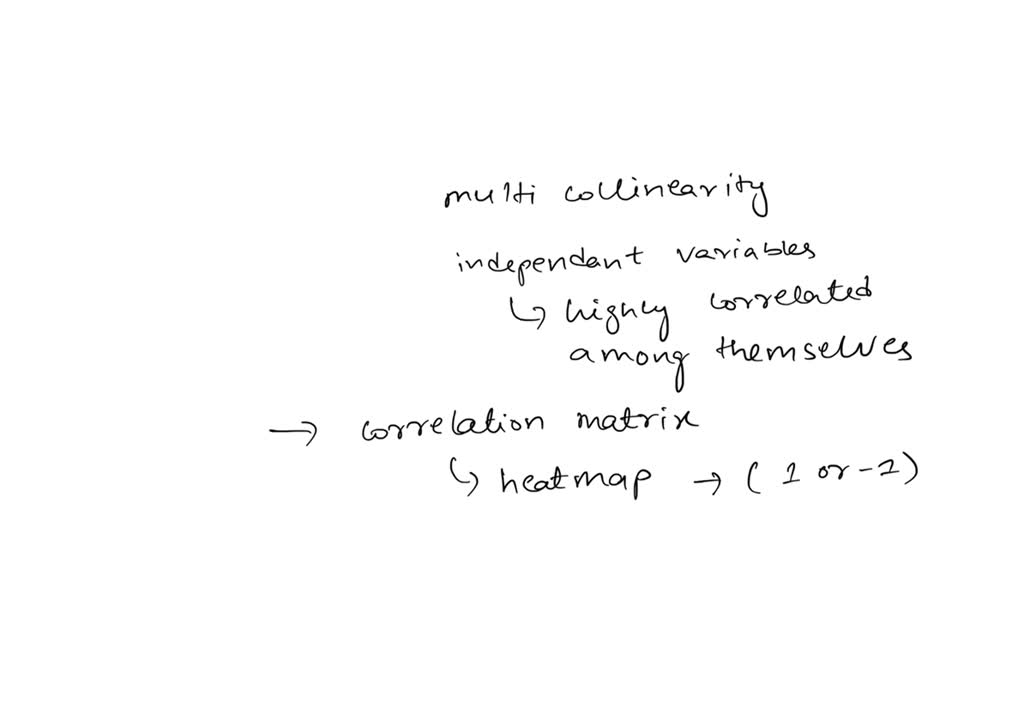 multi collinearity
independant variables
↳ highly correlated
among themselves
→ correlation matrix
↳ heatmap → (1 or -1)